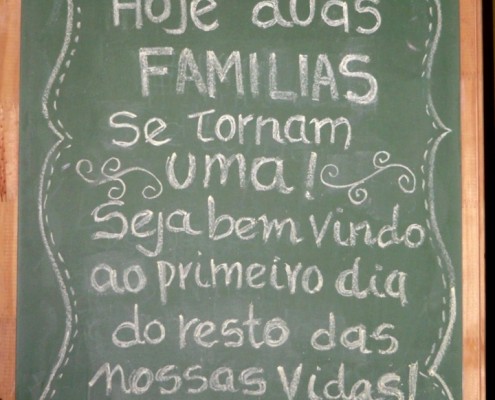 Hoje duas
FAMILIAS
Se tornam
uma!
Seja bem vindo
ao primeiro dia
do resto das
nossas vidas!